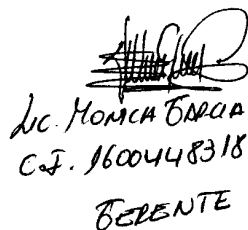 Lic. Monica Garcia
C.I. 1600448318
GERENTE